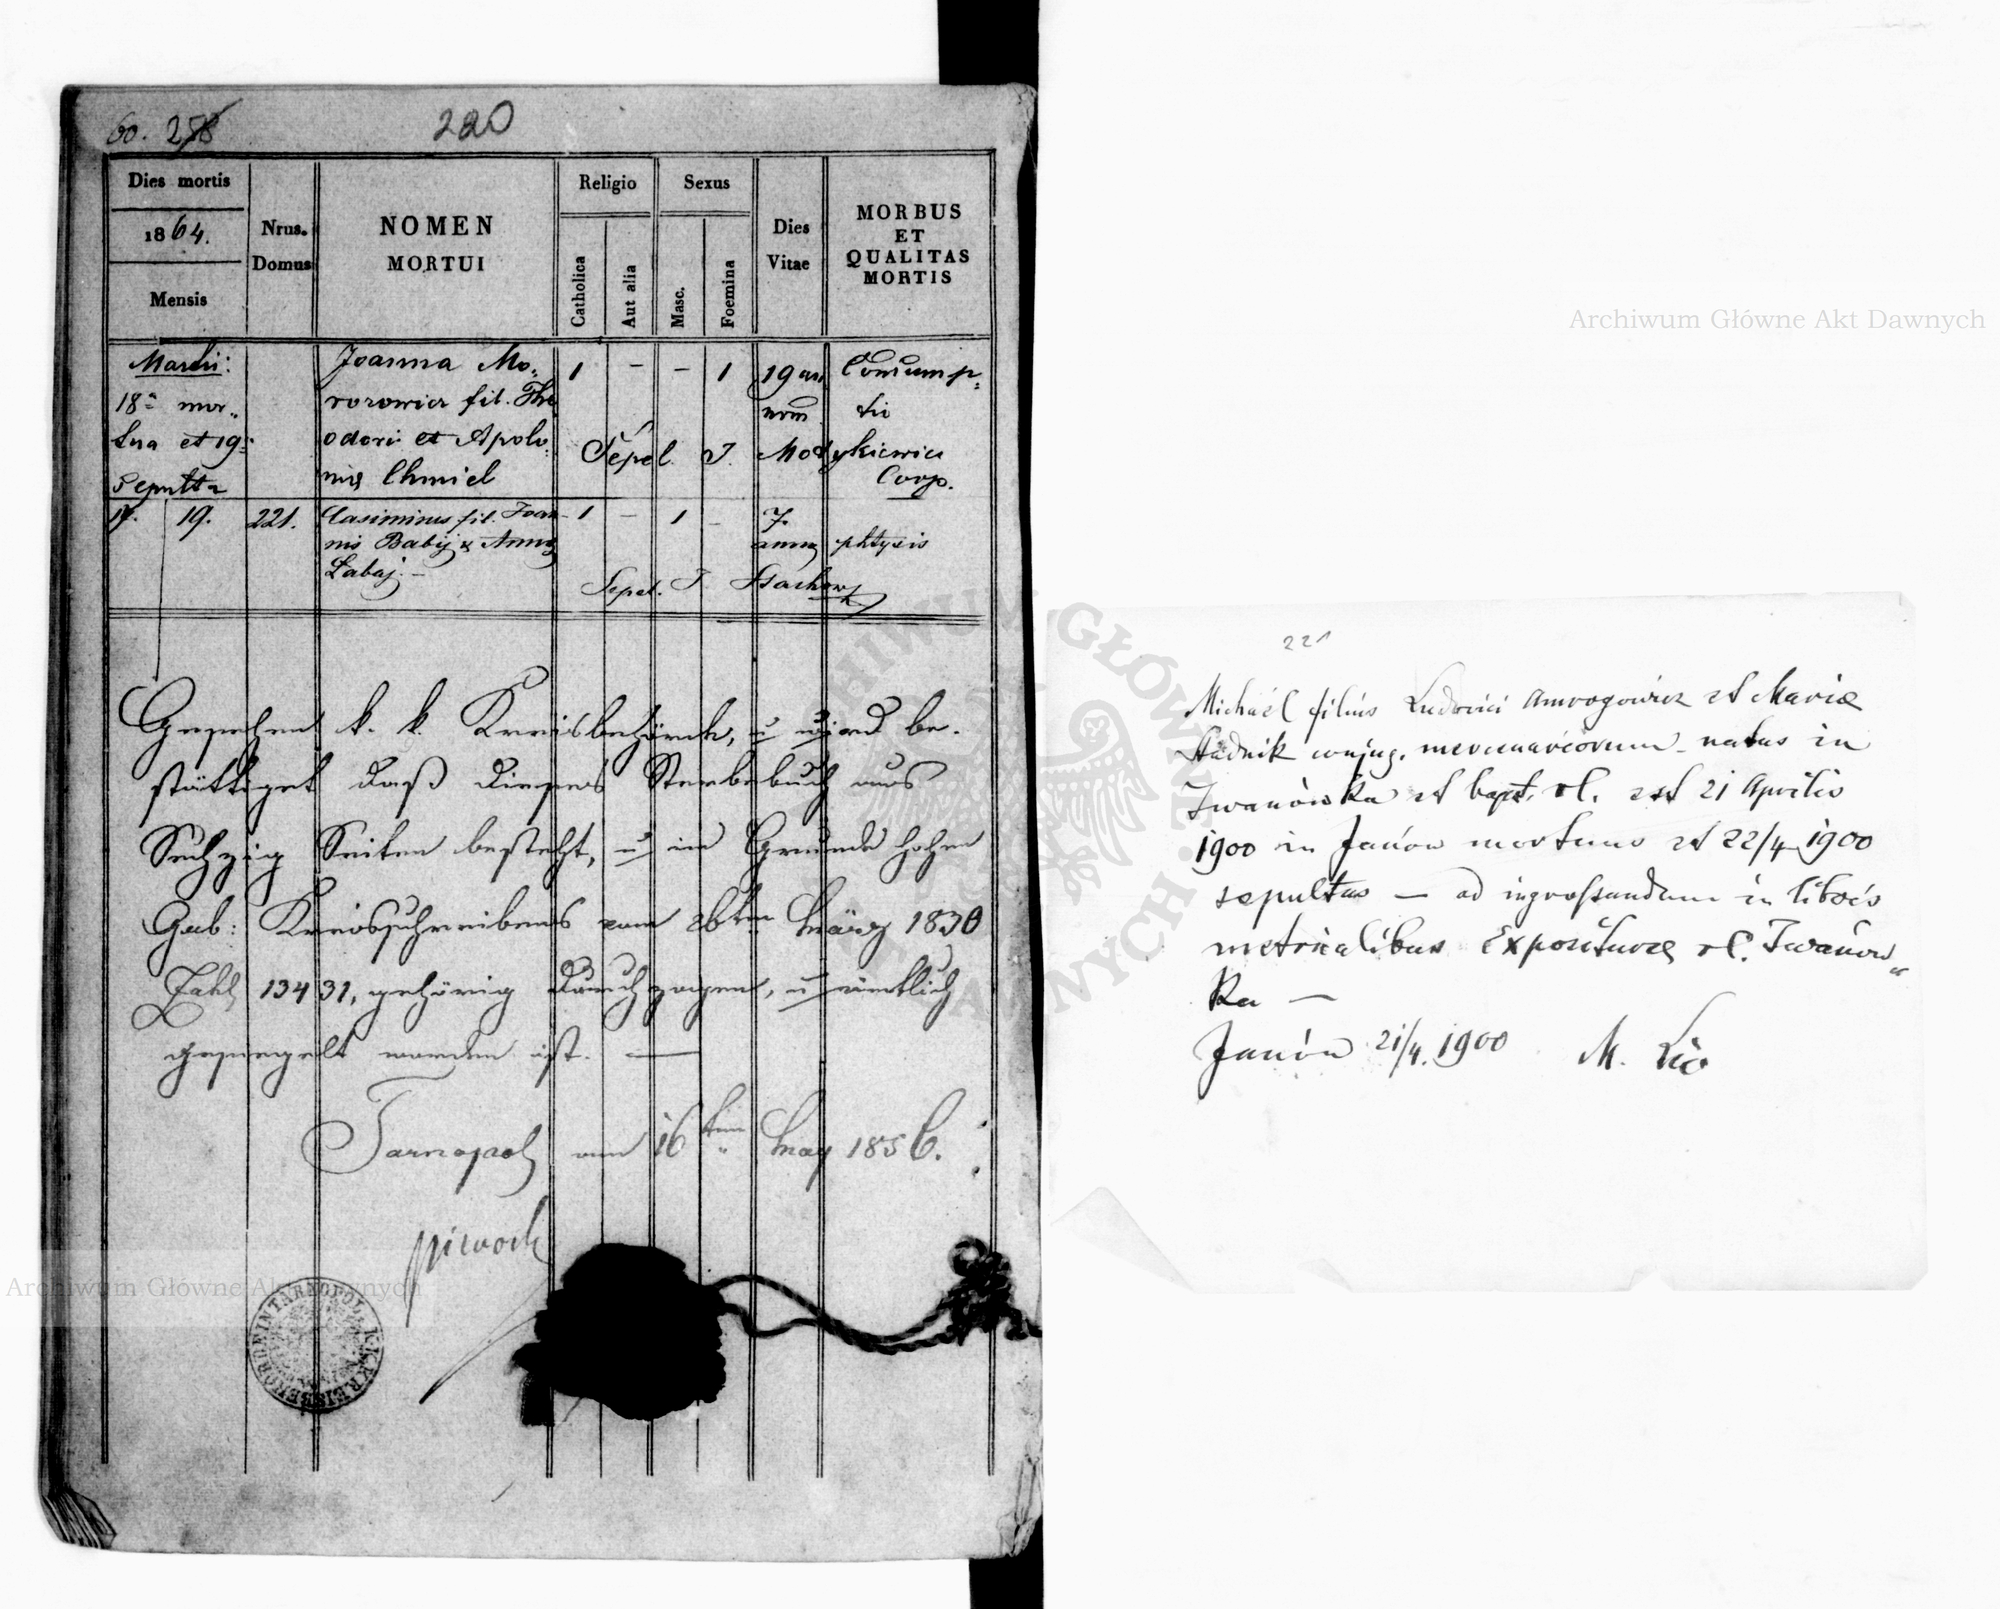 60. 258
220
Dies mortis
1864.
Mensis
Nrus.
Domus
NOMEN
MORTUI
Religio
Catholica
Aut alia
Sexus
Masc.
Foemina
Dies
Vitae
MORBUS
ET
QUALITAS
MORTIS
Martii:
18a mor„
tua et 19a
Sepulta
Joanna Mo„
rozowicz fil. The
odori et Apolo„
niæ Chmiel
1 – – 1
19 an
norum
Consump„
tio
Sepel. J. Motykiewicz
Coop.
17. 19.
221.
Casimirus fil. Joan
nis Babij & Annæ
Łabaj. –
1 – 1 –
7
annor phtysis
Sepel. J.
Gesehen k. k. Kreisbehörde, u wird be-
stättiget daß dieses Sterbebuch aus
Sechzig Seiten besteht, u im Grunde hohen
Gub: Kreisschreibens vom 26ten März 1830
Zahl 13431, gehörig durchzogen, u ämtlich
gesiegelt worden ist. —
Tarnopol am 16ten May 1856.
K. K. KREISBEHÖRDE IN TARNOPOL
221
Michaël filius Ludovici Amrogowicz et Mariæ
Stadnik conjug. mercenariorum – natus in
Iwanówka et bapt. r l. est 21 Aprilis
1900 in Janów mortuus et 22/4 1900
sepultus — ad ingrossandum in libris
metricalibus Expositurae r l. Iwanów„
ka —
Janów 21/4. 1900 M.
Archiwum Główne Akt Dawnych
Archiwum Główne Akt Dawnych
ARCHIWUM GŁÓWNE AKT DAWNYCH